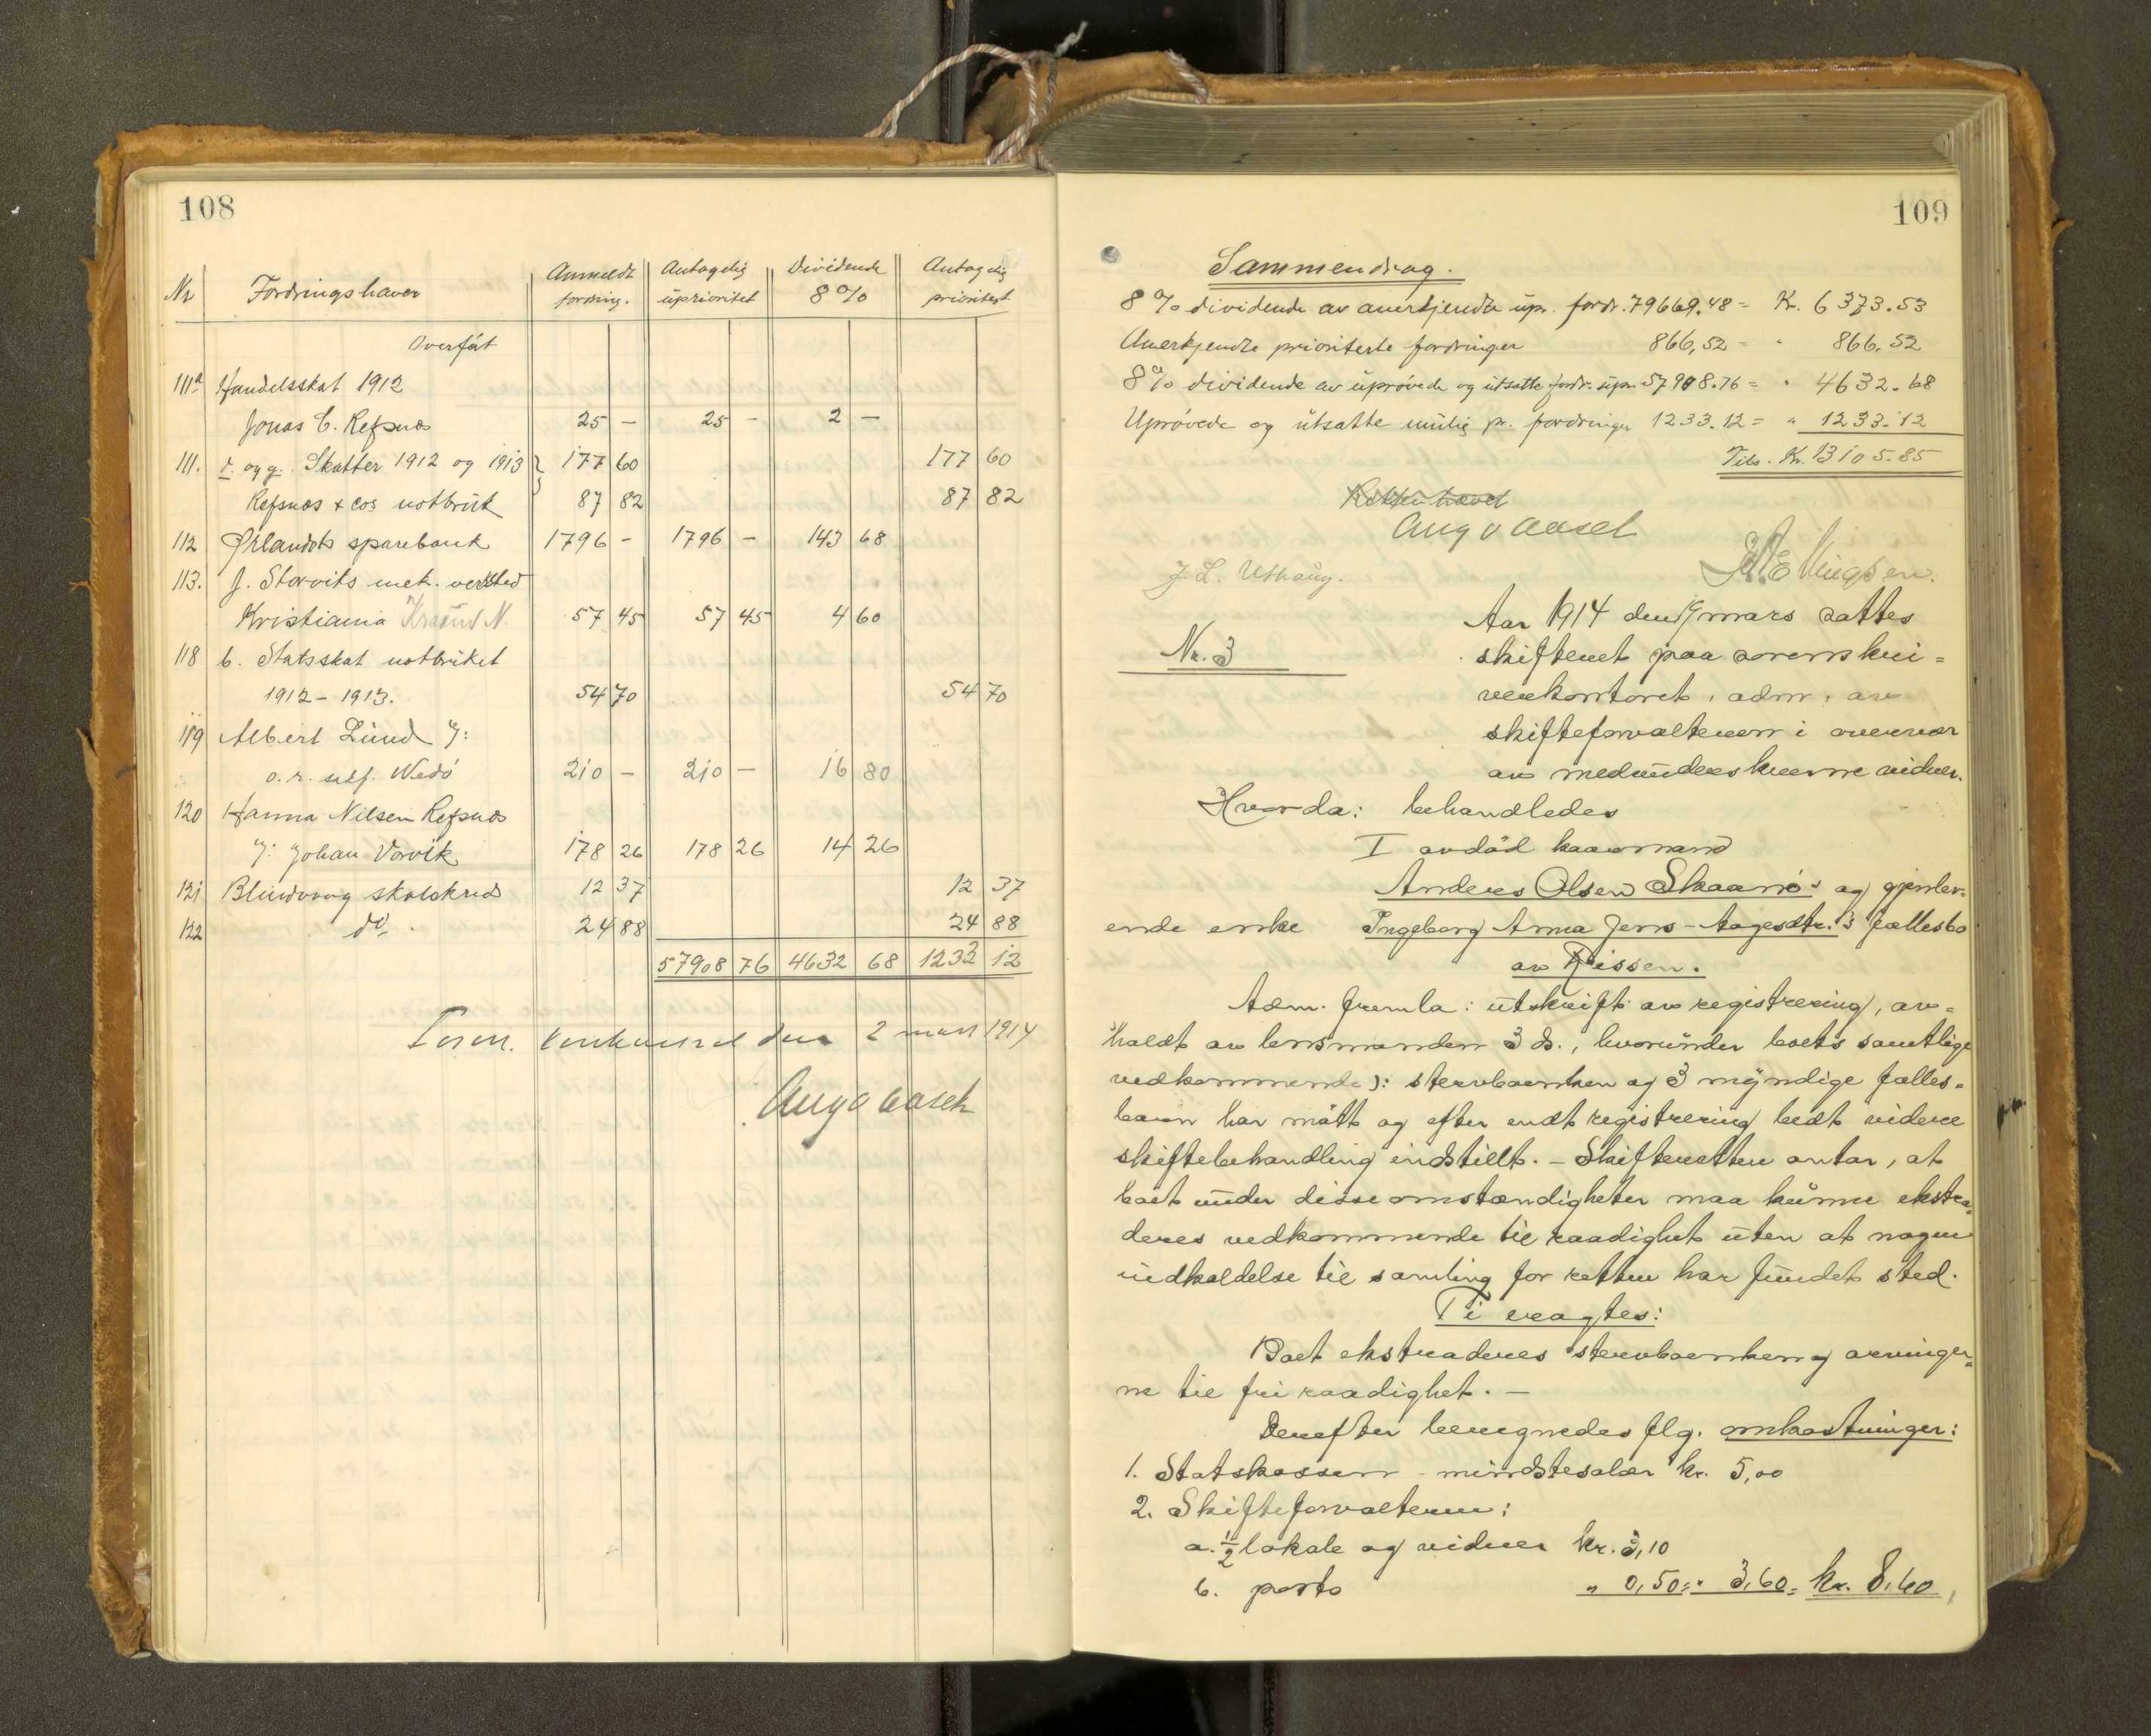 108
Nr Fordringshaver Anmeldt fordring. Antagelig uprioritet Dividende 8 % Antagelig prioritert
Overført
111a Handelsskat 1912
Jonas C. Refsnæs 25 – 25 – 2 –
111. d. og g. Skatter 1912 og 1913 177 60 177 60
Refsnæs & Cos notbruk 87 82 87 82
112 Ørlandets sparebank 1796 – 1796 – 143 68
113. J. Storviks mek. verksted
Kristiania Krsund N. 57 45 57 45 4 60
118 b. Statsskat notbruket
1912 – 1913. 54 70 54 70
119 Albert Lund
o. r. sakf. Wedø 210 – 210 – 16 80
120 Hanna Nilsen Refsnæs
Johan Vorvik 178 26 178 26 14 26
121 Blindvaag skolekred 12 37 12 37
122 do. 24 88 24 88
57908 76 4632 68 1232 12
den 2 mars 1914
Aug v Aasen
109
Sammendrag.
8 % dividende av anerkjendte upr. fordr. 79669.48 = Kr. 6373.53
Anerkjendte prioriterte fordringer 866,52 = " 866.52
8 % dividende av uprøvede og utsatte fordr. upr. 57908.76 = " 4632.68
Uprøvede og utsatte mulig pr. fordringer 1233.12 = " 1233.12
Tils. Kr. 13105.85
Retten hævet
Aug v Aasen
J. L. Uthaug.
Nr. 3
Aar 1914 den 19 mars sattes
skifteret paa sorenskri=
verkontoret, adm. av
skifteforvalteren i overvær
av medunderskrevne vidner.
Hvorda: behandledes
I avdød kaarmand
Anders Olsen Skaanø's og gjenlev-
ende enke Ingeborg Anna Jens-Aagesdtr.'s fællesbo
av Rissen.
Adm. fremla: utskrift av registrering, av=
holdt av lensmanden 3 ds., hvorunder boets samtlige
vedkommende ): stervboenken og 3 myndige fælles=
barn har møtt og efter endt registrering bedt videre
skiftebehandling indstillt. – Skifteretten antar, at
boet under disse omstændigheter maa kunne ekstra=
deres vedkommende til raadighet uten at nogen
indkaldelse til samling for retten har fundet sted.
Ti eragtes:
Boet ekstraderes stervboenken og arvinger=
ne til fri raadighet. –
Derefter beregnedes flg. omkostninger:
1. Statskassen – mindstesalær kr. 5,00
2. Skifteforvalteren:
a. 1/2 lokale og vidner kr. 3,10
b. porto " 0,50 = " 3,60 = kr. 8,60